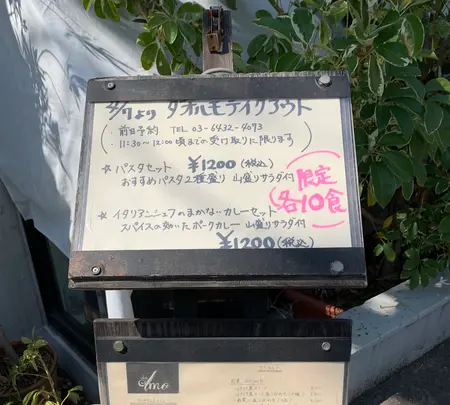 4/7より タオルモテイクアウト
・前日予約 TEL 03-6432-4073
・11:30~12:00頃までの受け取りに限ります
☆パスタセット ¥1200(税込)
おすすめパスタ2種盛り 山盛りサラダ付
限定
各10食
☆イタリアンシェフのまかないカレーセット
スパイスの効いたポークカレー 山盛りサラダ付
¥1200(税込)